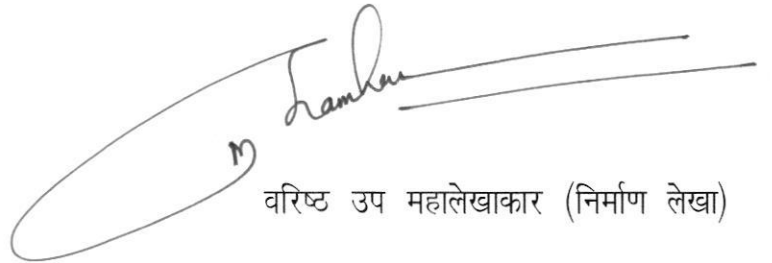 वरिष्ठ उप महालेखाकार (निर्माण लेखा)